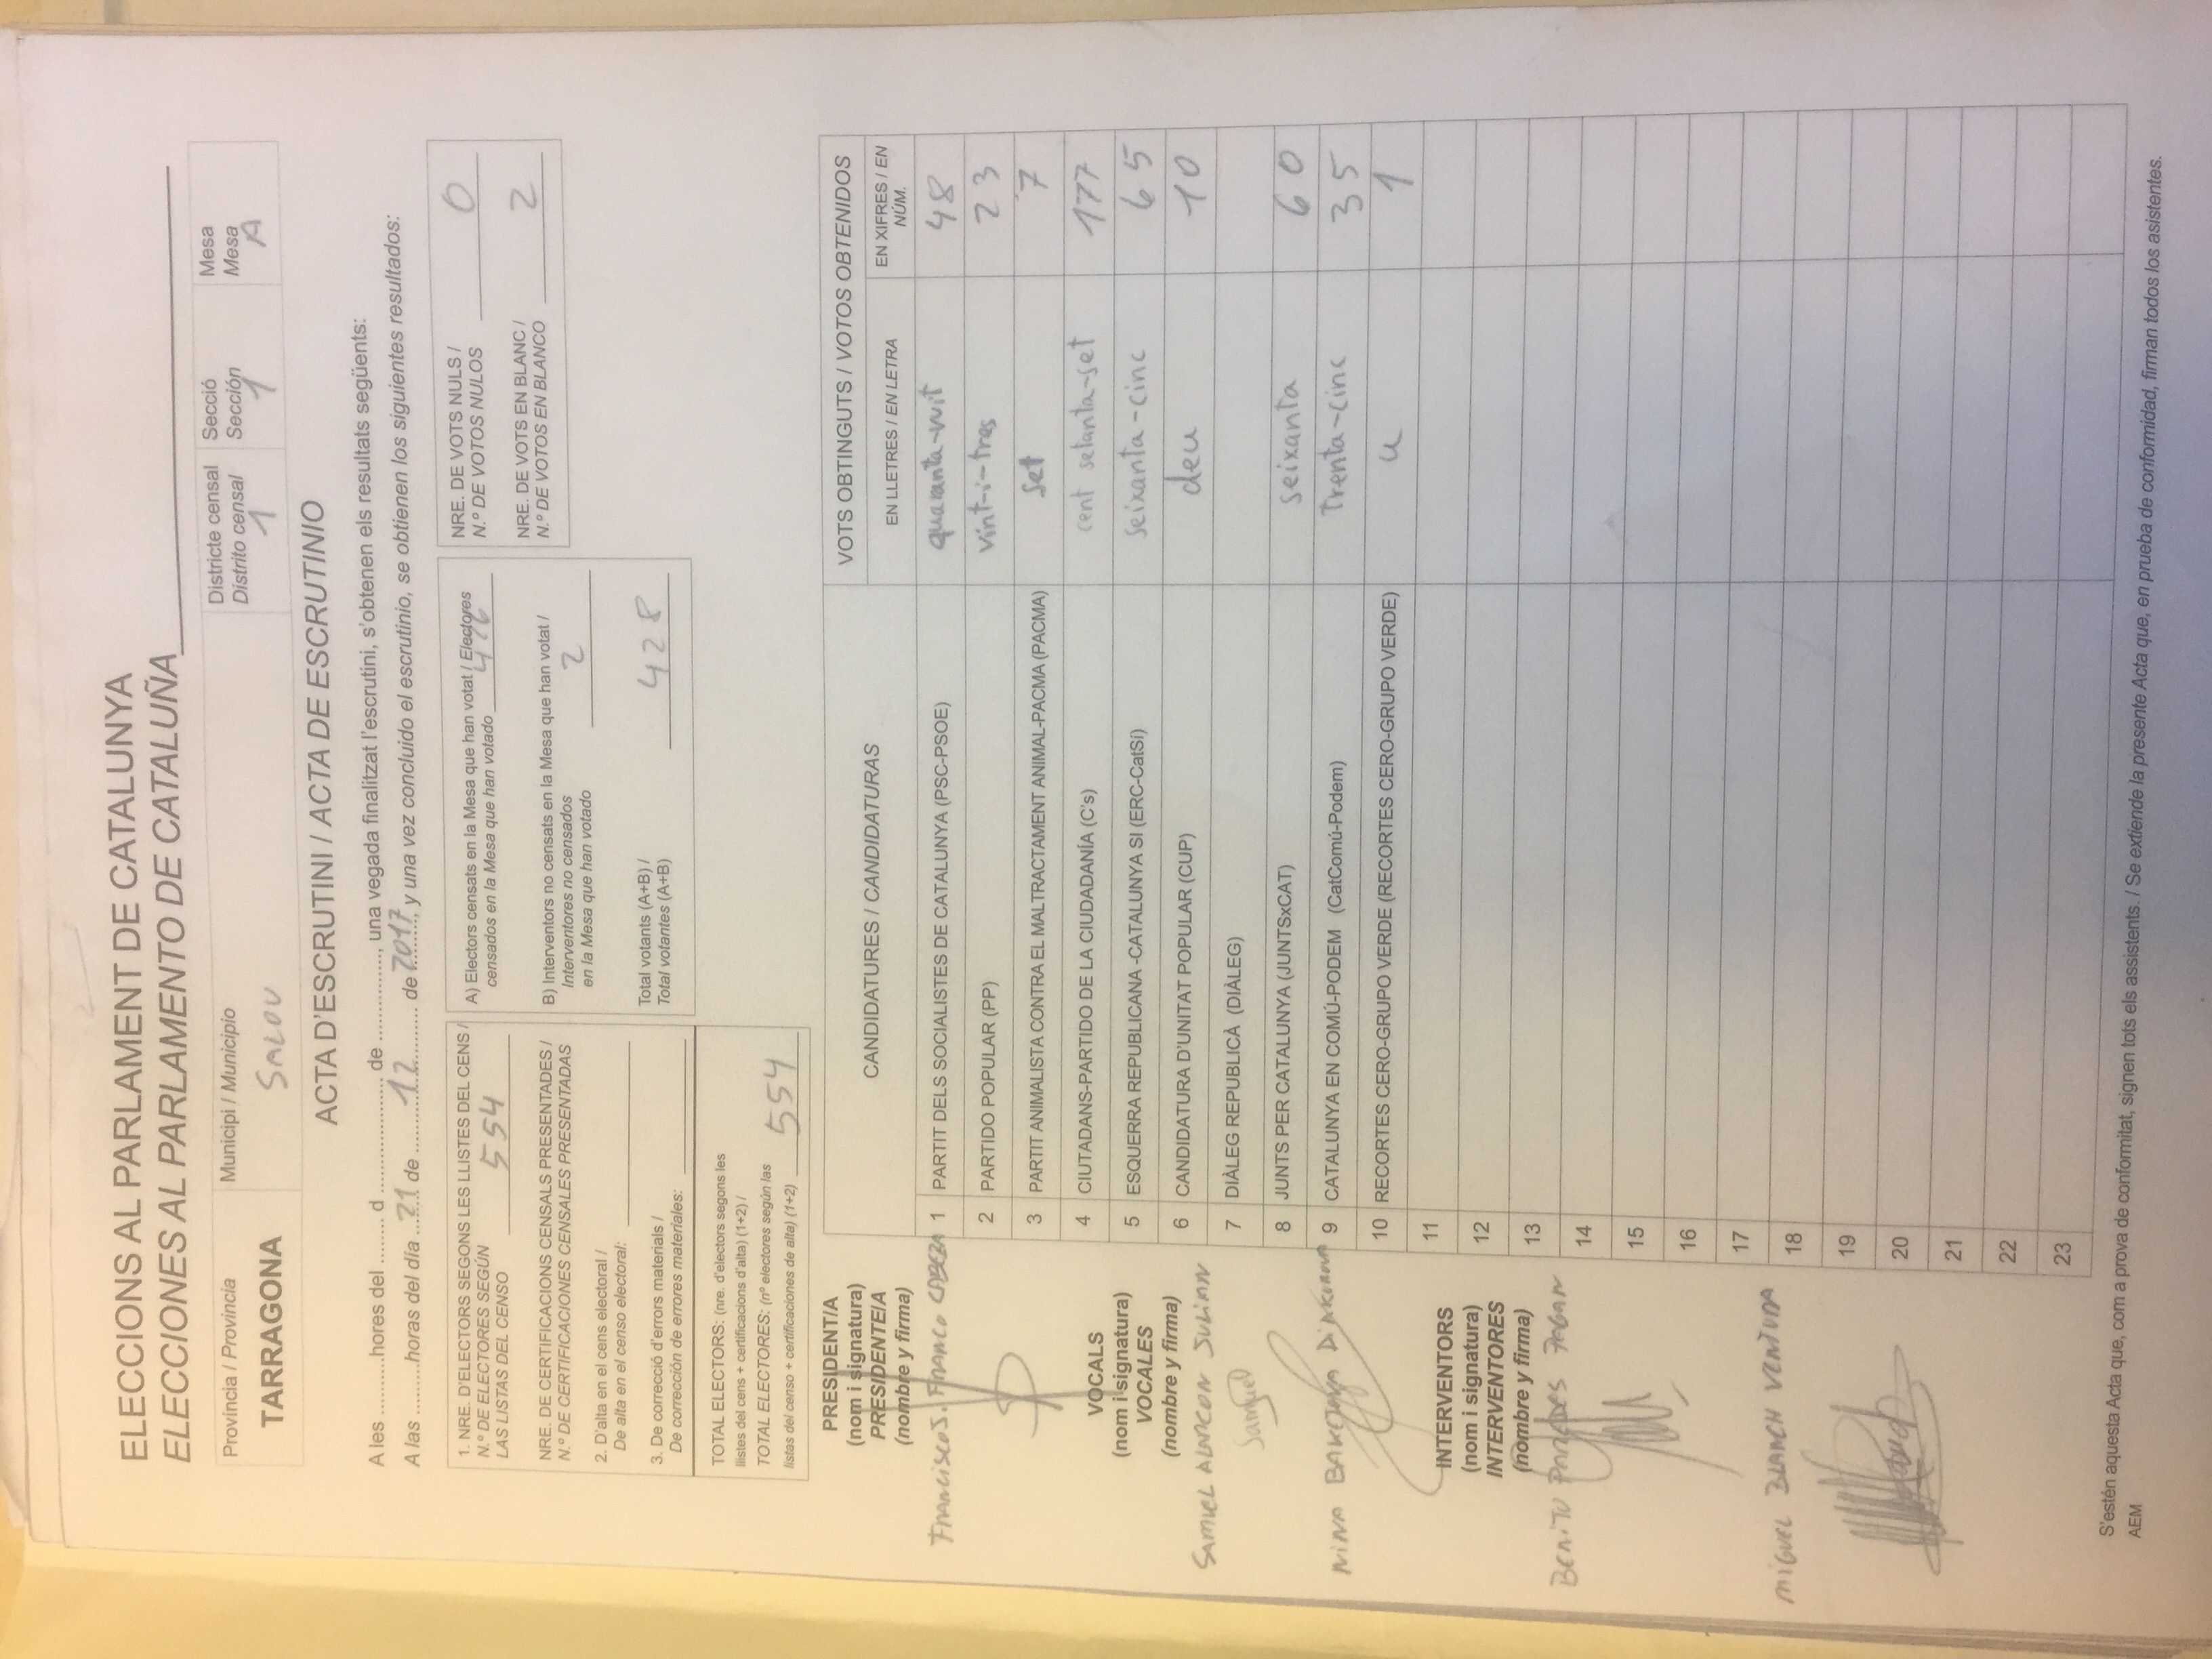 ELECCIONS AL PARLAMENT DE CATALUNYA
ELECCIONES AL PARLAMENTO DE CATALUÑA
Província / Provincia
TARRAGONA
Municipi / Municipio
SALOU
Districte censal
Distrito censal
1
Secció
Sección
1
Mesa
Mesa
A
ACTA D'ESCRUTINI / ACTA DE ESCRUTINIO
A les .........hores del ....... d ................... de .............., una vegada finalitzat l'escrutini, s'obtenen els resultats següents:
A las .........horas del día 21 de 12 de 2017, y una vez concluido el escrutinio, se obtienen los siguientes resultados:
1. NRE. D'ELECTORS SEGONS LES LLISTES DEL CENS /
N.º DE ELECTORES SEGÚN
LAS LISTAS DEL CENSO 554
NRE. DE CERTIFICACIONS CENSALS PRESENTADES /
N.º DE CERTIFICACIONES CENSALES PRESENTADAS
2. D'alta en el cens electoral /
De alta en el censo electoral:
3. De correcció d'errors materials /
De corrección de errores materiales:
TOTAL ELECTORS: (nre. d'electors segons les
llistes del cens + certificacions d'alta) (1+2) /
TOTAL ELECTORES: (nº electores según las
listas del censo + certificaciones de alta) (1+2) 554
A) Electors censats en la Mesa que han votat / Electores
censados en la Mesa que han votado 426
B) Interventors no censats en la Mesa que han votat /
Interventores no censados
en la Mesa que han votado 2
Total votants (A+B) /
Total votantes (A+B) 428
NRE. DE VOTS NULS /
N.º DE VOTOS NULOS 0
NRE. DE VOTS EN BLANC /
N.º DE VOTOS EN BLANCO 2
PRESIDENT/A
(nom i signatura)
PRESIDENTE/A
(nombre y firma)
FRANCISCO J. FRANCO CABEZA
VOCALS
(nom i signatura)
VOCALES
(nombre y firma)
SAMUEL ALARCON JULIAN
Samuel
NINA
INTERVENTORS
(nom i signatura)
INTERVENTORES
(nombre y firma)
BENITO PAREDES PAGAN
MIGUEL BLANCH VENTURA
CANDIDATURES / CANDIDATURAS
VOTS OBTINGUTS / VOTOS OBTENIDOS
EN LLETRES / EN LETRA
EN XIFRES / EN
NÚM.
1 PARTIT DELS SOCIALISTES DE CATALUNYA (PSC-PSOE) quaranta-vuit 48
2 PARTIDO POPULAR (PP) vint-i-tres 23
3 PARTIT ANIMALISTA CONTRA EL MALTRACTAMENT ANIMAL-PACMA (PACMA) set 7
4 CIUTADANS-PARTIDO DE LA CIUDADANÍA (C's) cent setanta-set 177
5 ESQUERRA REPUBLICANA -CATALUNYA SI (ERC-CatSí) seixanta-cinc 65
6 CANDIDATURA D'UNITAT POPULAR (CUP) deu 10
7 DIÀLEG REPUBLICÀ (DIÀLEG)
8 JUNTS PER CATALUNYA (JUNTSxCAT) seixanta 60
9 CATALUNYA EN COMÚ-PODEM (CatComú-Podem) trenta-cinc 35
10 RECORTES CERO-GRUPO VERDE (RECORTES CERO-GRUPO VERDE) u 1
11
12
13
14
15
16
17
18
19
20
21
22
23
S'estén aquesta Acta que, com a prova de conformitat, signen tots els assistents. / Se extiende la presente Acta que, en prueba de conformidad, firman todos los asistentes.
AEM